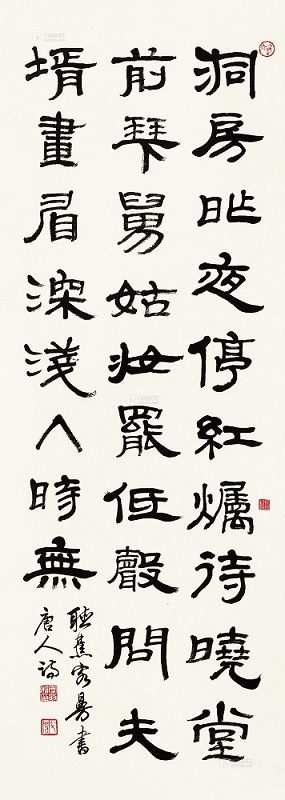 洞房昨夜停紅爥待曉堂
前拜舅姑妝罷低聲問夫
壻畫眉深淺入時無
蕉書
唐人詩